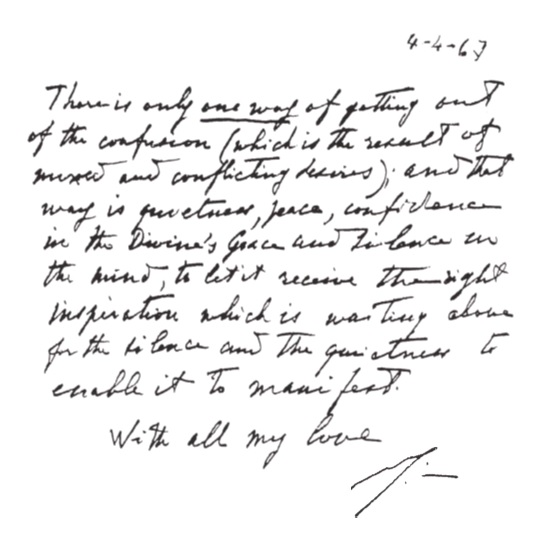 4-4-67
There is only one way of getting out
of the confusion (which is the result of
mixed and conflicting desires); and that
way is quietness, peace, confidence
in the Divine's Grace and silence in
the mind, to let it receive the right
inspiration which is waiting above
for the silence and the quietness to
enable it to manifest.
With all my love